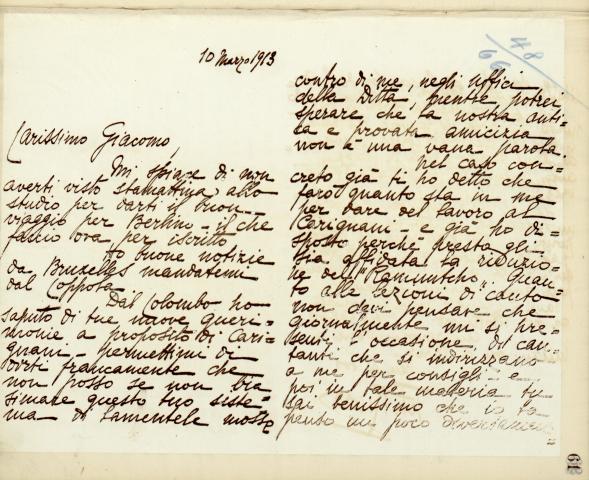 10 Marzo 1913
48/66
Carissimo Giacomo,
Mi spiace di non
averti visto stamattina allo
studio per darti il buon
viaggio per Berlino - il che
faccio ora per iscritto
Ho buone notizie
da Bruxelles mandatemi
dal Coppola.
Dal Colombo ho
saputo di tue nuove queri=
monie a proposito di Cari=
gnani - permettimi di
dirti francamente che
non posso se non bia=
simare questo tuo siste=
ma di lamentele mosse
contro di me, negli uffici
della Ditta, mentre potrei
sperare che la nostra anti=
ca e provata amicizia
non è una vana parola.
Nel caso con=
creto già ti ho detto che
farò quanto sta in me
per dare del lavoro al
Carignani - e già ho di=
sposto perchè presto gli
sia affidata la riduzio=
ne del "Ramuntcho". Quan=
to alle lezioni di canto
non devi pensare che
giornalmente mi si pre=
senti occasione di can=
tanti che si indirizzano
a me per consigli - e
poi in tale materia tu
sai benissimo che io la
penso un poco diversamente
61